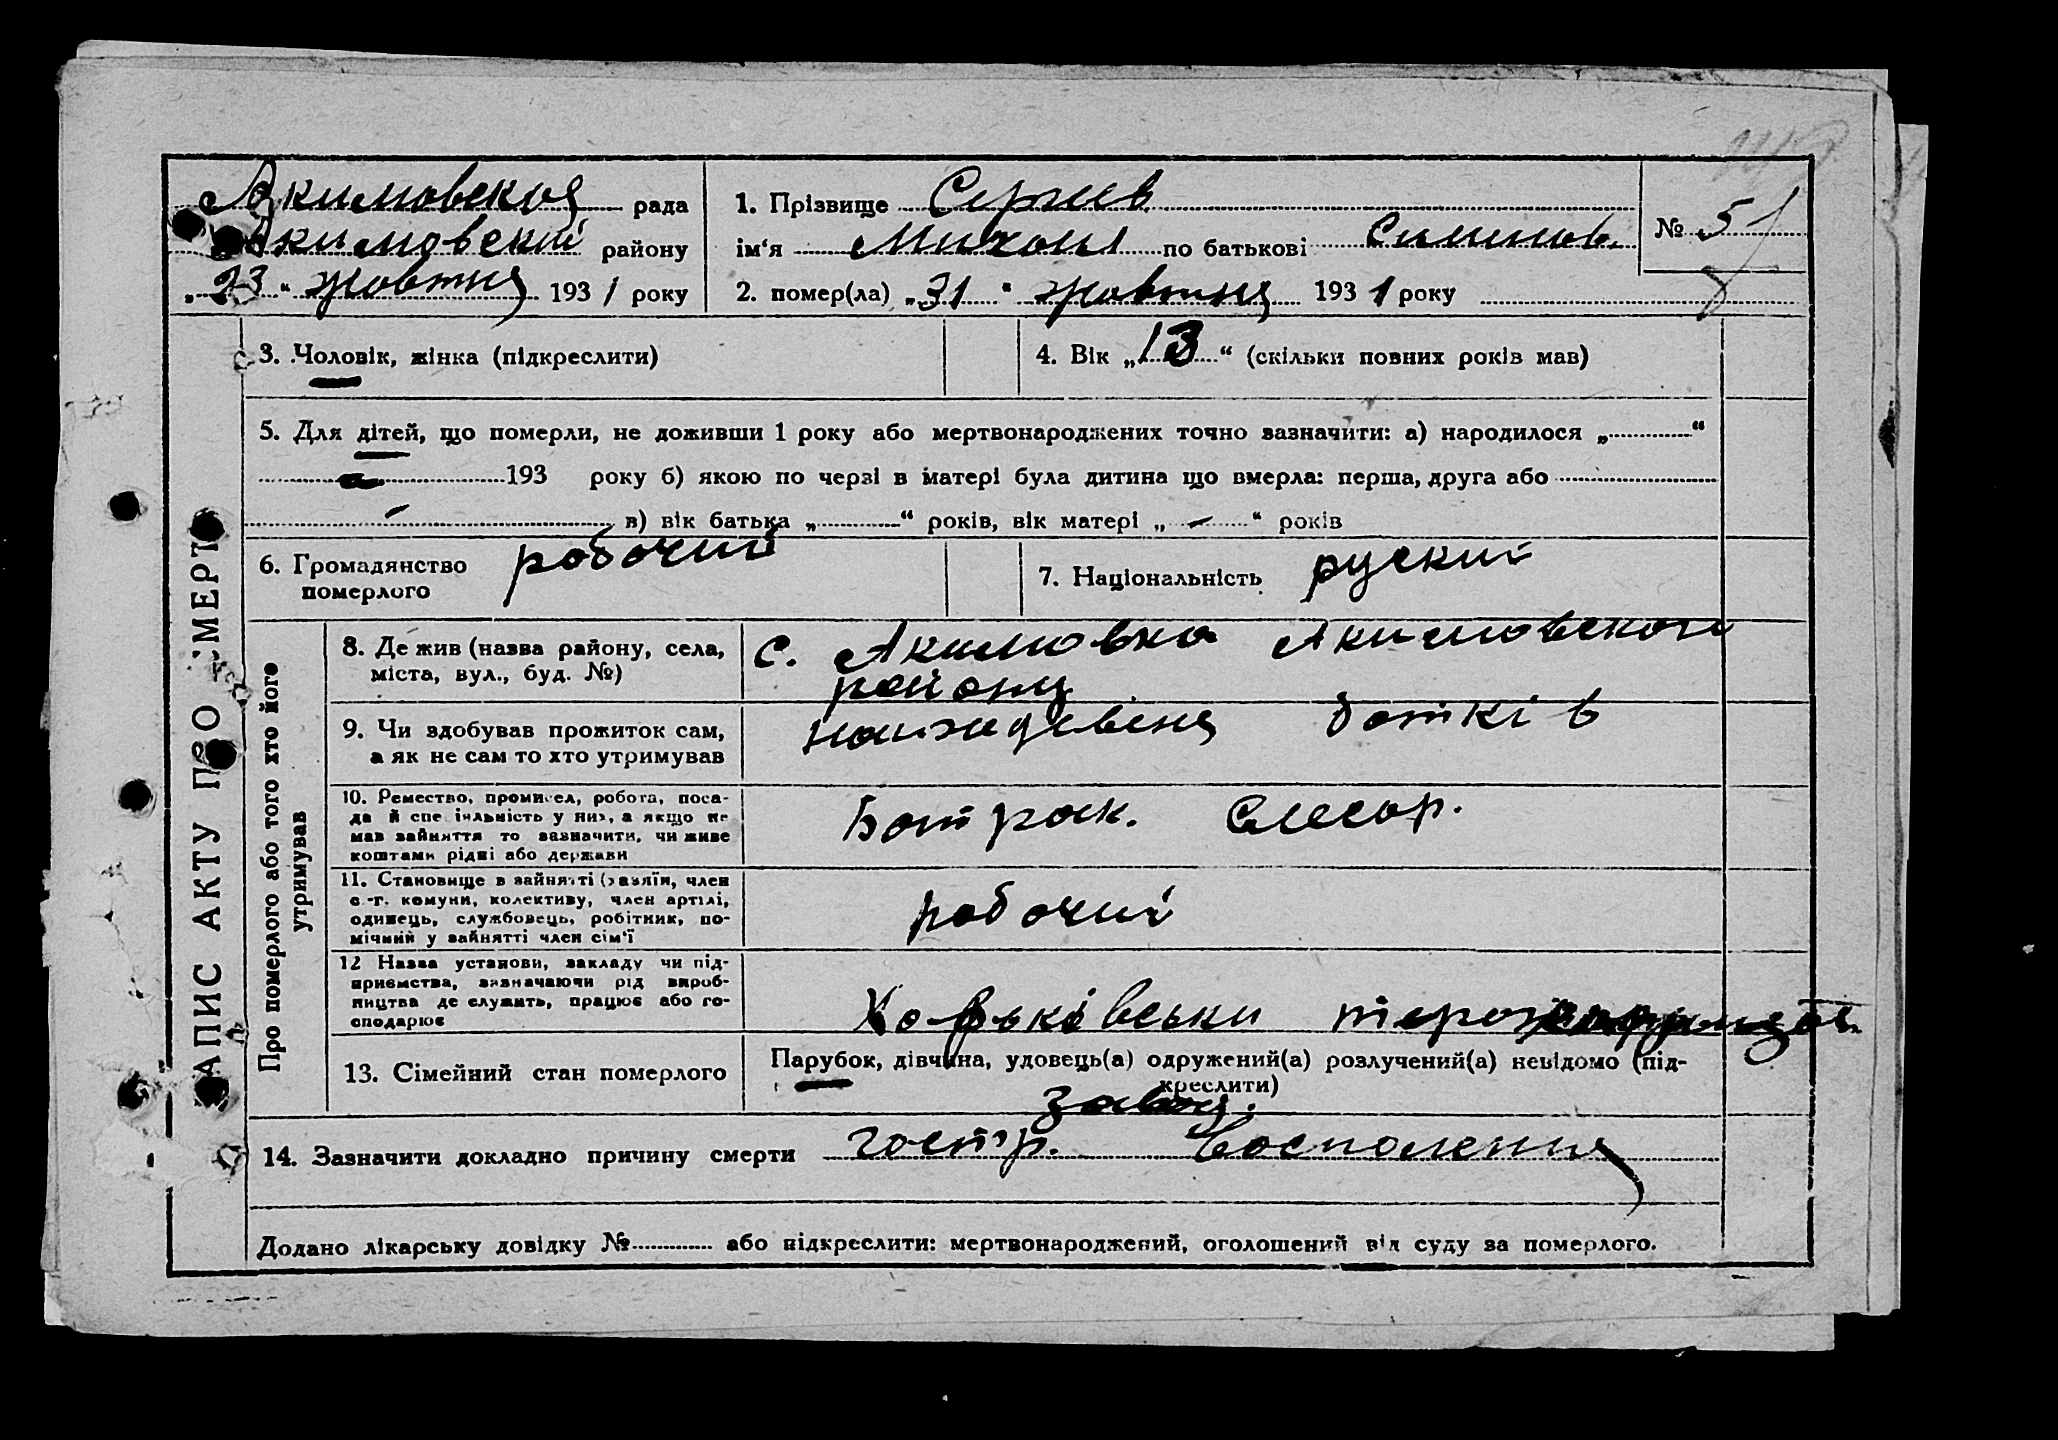 Акимовская рада
Акимовский району
„23“ жовтня 1931 року
1. Прізвище Сергиев
ім‘я Михаил по батькові
2. помер(ла) „31“ жовтня 1931 року
№ 51
ЗАПИС АКТУ ПРО СМЕРТЬ
3. Чоловік, жінка (підкреслити)
4. Вік „13“ (скільки повних років мав)
5. Для дітей, що померли, не доживши 1 року або мертвонароджених точно зазначити: а) народилося „ “
193 року б) якою по черзі в матері була дитина що вмерла: перша, друга або
– в) вік батька „ “ років, вік матері „ – “ років
6. Громадянство померлого робочий
7. Національність руский
Про померлого або того хто його утримував
8. Де жив (назва району, села,
міста, вул., буд. №)
с. Акимовка Акимовского
району
9. Чи здобував прожиток сам,
а як не сам то хто утримував
на батьків
10. Ремество, промисел, робота, поса-
да й спеціяльність у них, а якщо не
мав зайняття то зазначити, чи живе
коштами рідні або держави
Батрак. Слесар.
11. Становище в зайнятті (хазяїн, член
с.-г. комуни, колективу, член артілі,
одинець, службовець, робітник, по-
мічний у зайнятті член сім‘ї
робочий
12 Назва установи, закладу чи під-
приємства, зазначаючи рід вироб-
ництва де служить, працює або го-
сподарює
Харьківськи
13. Сімейний стан померлого
Парубок, дівчина, удовець(а) одружений(а) розлучений(а) невідомо (під-
креслити)
завод.
14. Зазначити докладно причину смерти гостр. воспаления
Додано лікарську довідку № або підкреслити: мертвонароджений, оголошений від суду за померлого.